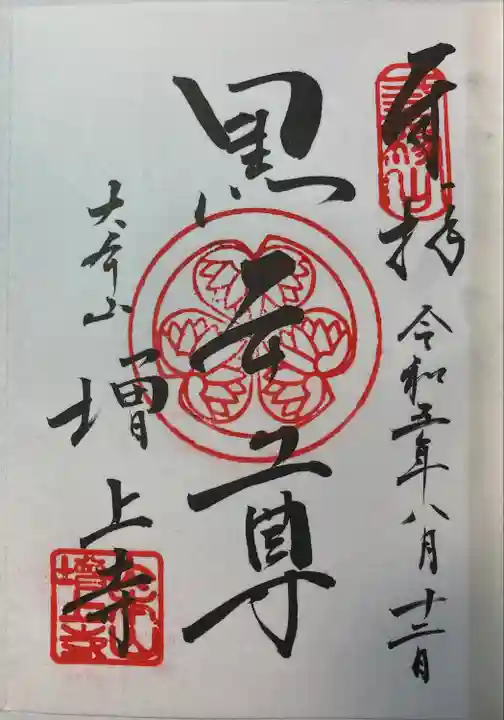 奉拝
令和五年八月十三日
黒本尊
大本山
増上寺